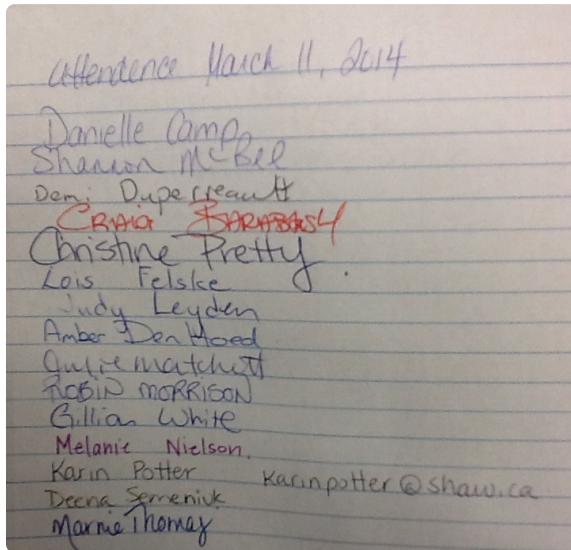 Attendence March 11, 2014
Danielle Camp
Shannon McBee
Demi Dupereault
CRAIG BARABASH
Christine Pretty.
Lois Felske
Judy Leyden
Amber Den Hoed
Julie Matchett
ROBIN MORRISON
Gillian White
Melanie Nielson.
Karin Potter karinpotter@shaw.ca
Deena Semeniuk
Marnie Thomas